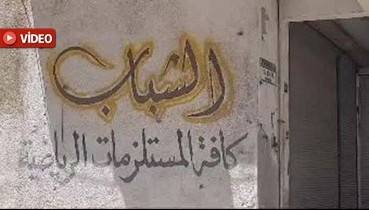 VİDEO
الشباب
كافة المستلزمات الرياضية